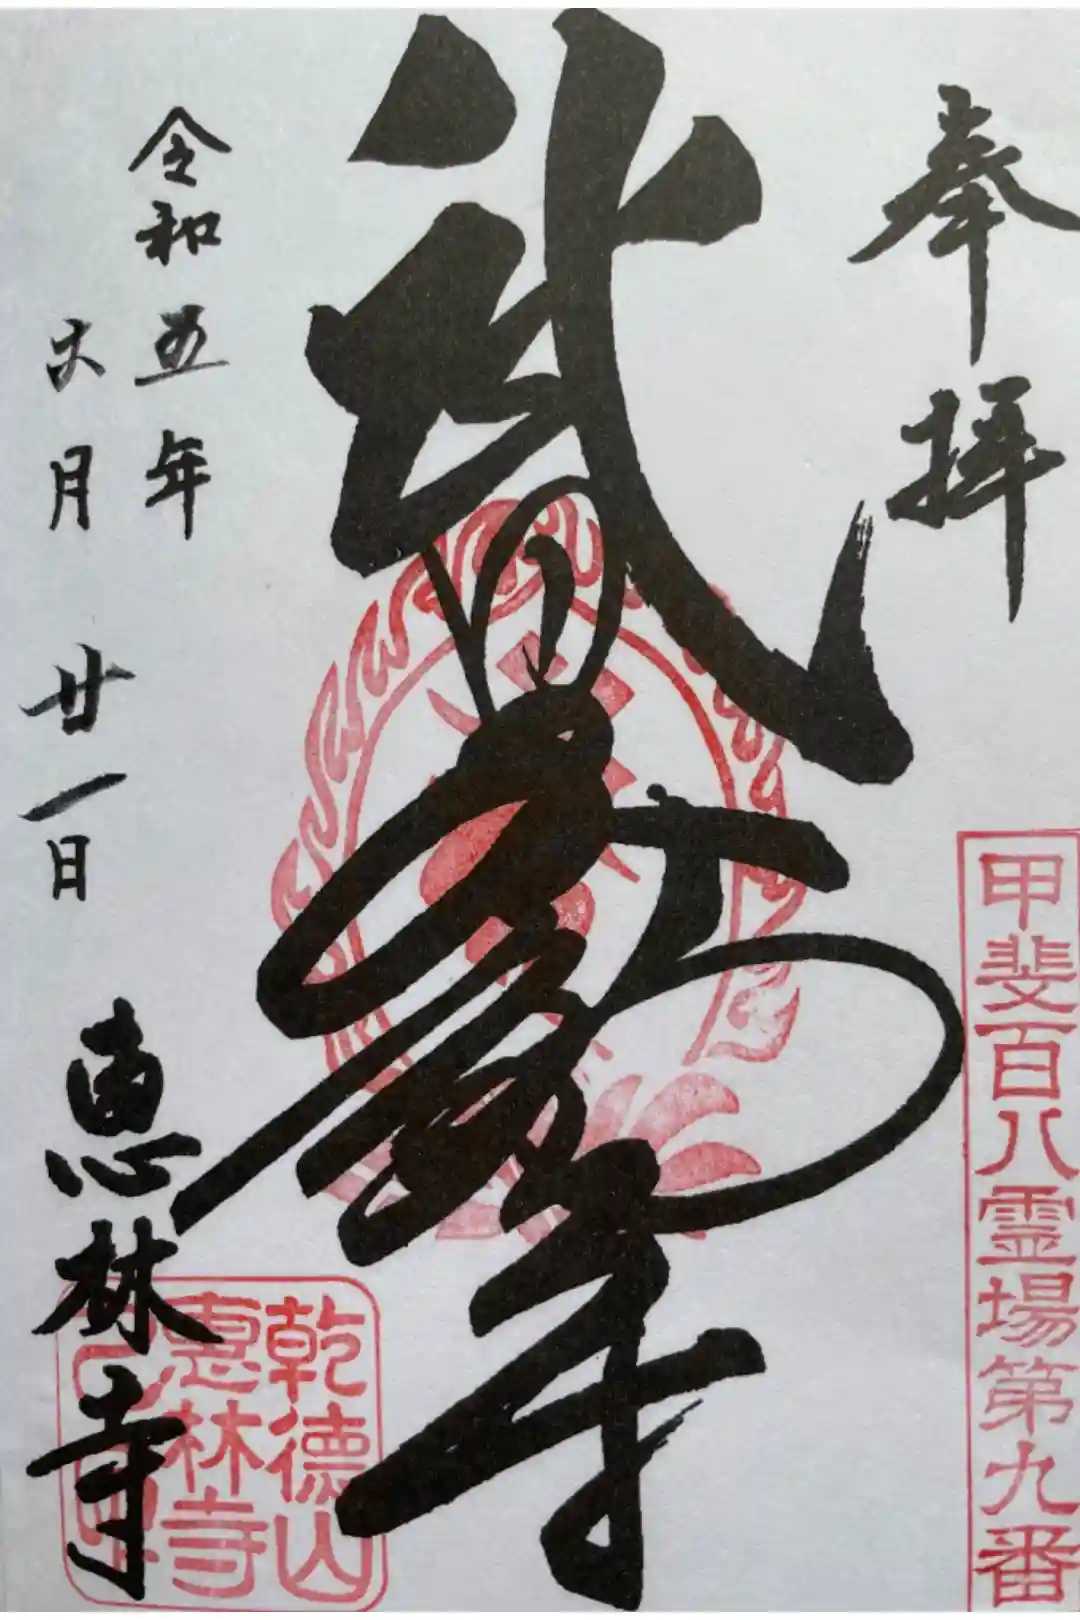 奉拝
甲斐百八霊場第九番
武田不動尊
令和五年
六月廿一日
恵林寺
乾徳山
恵林寺